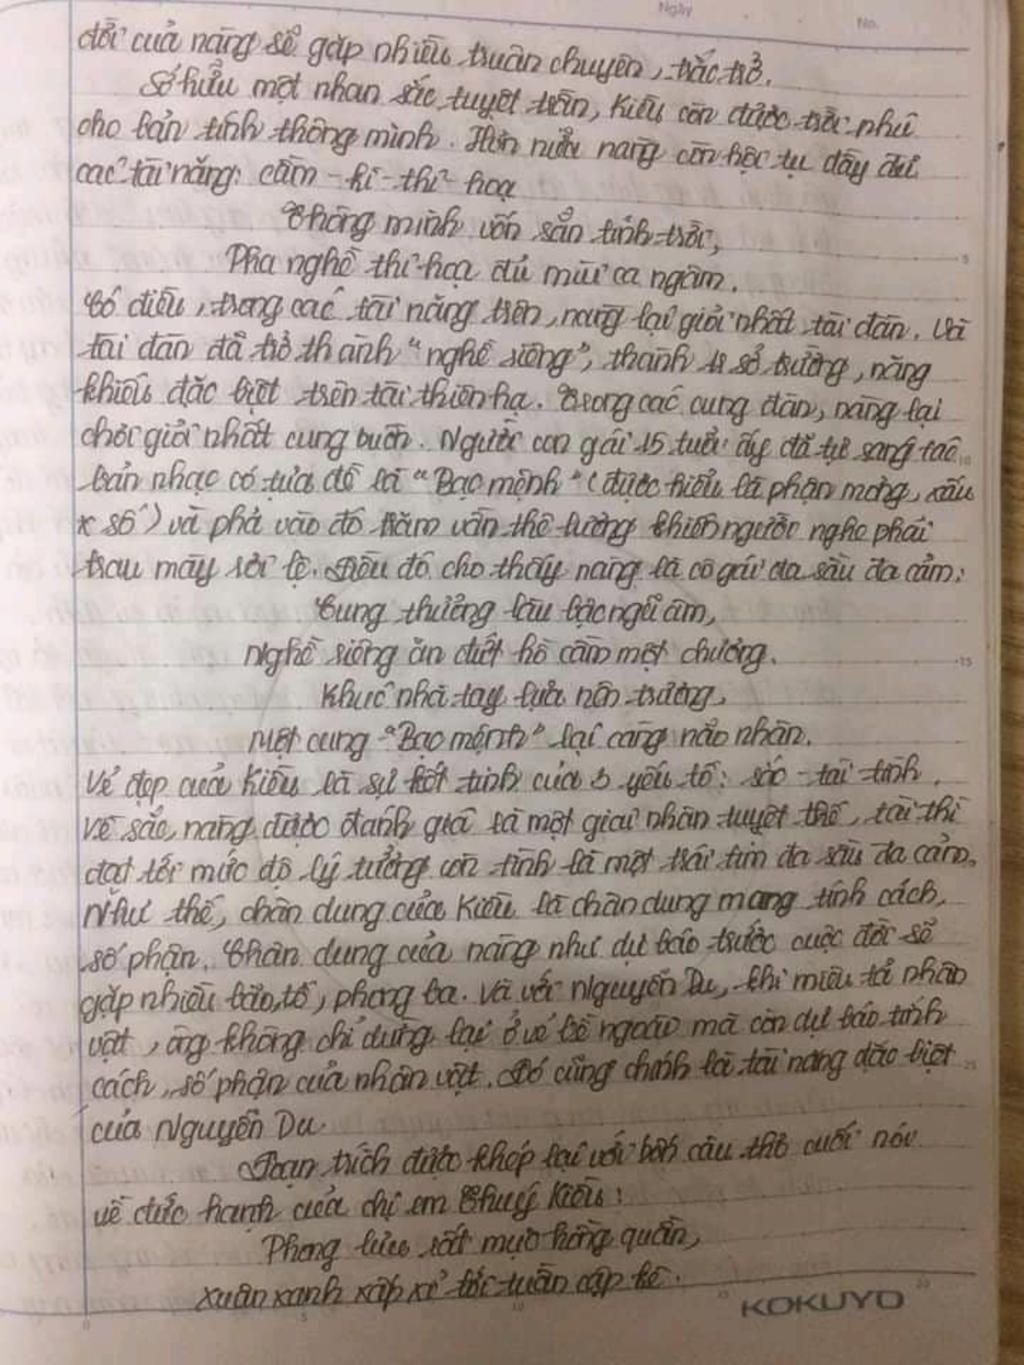 Ngày No.
đời của nàng sẽ gặp nhiều truân chuyên, trắc trở.
Sở hữu một nhan sắc tuyệt trần, Kiều còn được trời phú
cho bản tính thông minh. Hơn nữa nàng còn hội tụ đầy đủ
các tài năng: cầm - kì - thi - hoạ
Thông minh vốn sẵn tính trời,
Pha nghề thi hoạ đủ mùi ca ngâm.
Có điều, trong các tài năng trên, nàng lại giỏi nhất tài đàn. Và
tài đàn đã trở thành "nghề riêng", thành sở trường, năng
khiếu đặc biệt trên tài thiên hạ. Trong các cung đàn, nàng lại
chơi giỏi nhất cung buồn. Người con gái 15 tuổi ấy đã tự sáng tác
bản nhạc có tựa đề là "Bạc mệnh" (được hiểu là phận mỏng, xấu
số) và phả vào đó trăm vần thê lương khiến người nghe phải
trau mày rơi lệ. Điều đó cho thấy nàng là cô gái đa sầu đa cảm:
Cung thương lầu bậc ngũ âm,
Nghề riêng ăn đứt hồ cầm một chương.
Khúc nhà tay lựa nên trương,
Một cung "Bạc mệnh" lại càng não nhân.
Vẻ đẹp của Kiều là sự kết tinh của 3 yếu tố: sắc - tài - tình.
Về sắc, nàng được đánh giá là một giai nhân tuyệt thế, tài thì
đạt tới mức độ lý tưởng còn tình là một trái tim đa sầu đa cảm.
Như thế, chân dung của Kiều là chân dung mang tính cách,
số phận. Chân dung của nàng như dự báo trước cuộc đời sẽ
gặp nhiều bão tố, phong ba. Và với Nguyễn Du, khi miêu tả nhân
vật, ông không chỉ dừng lại ở vẻ bề ngoài mà còn dự báo tính
cách, số phận của nhân vật. Đó cũng chính là tài năng đặc biệt
của Nguyễn Du.
Đoạn trích được khép lại với bốn câu thơ cuối nói
về đức hạnh của chị em Thuý Kiều:
Phong lưu rất mực hồng quần,
Xuân xanh xấp xỉ tới tuần cập kê.
KOKUYO